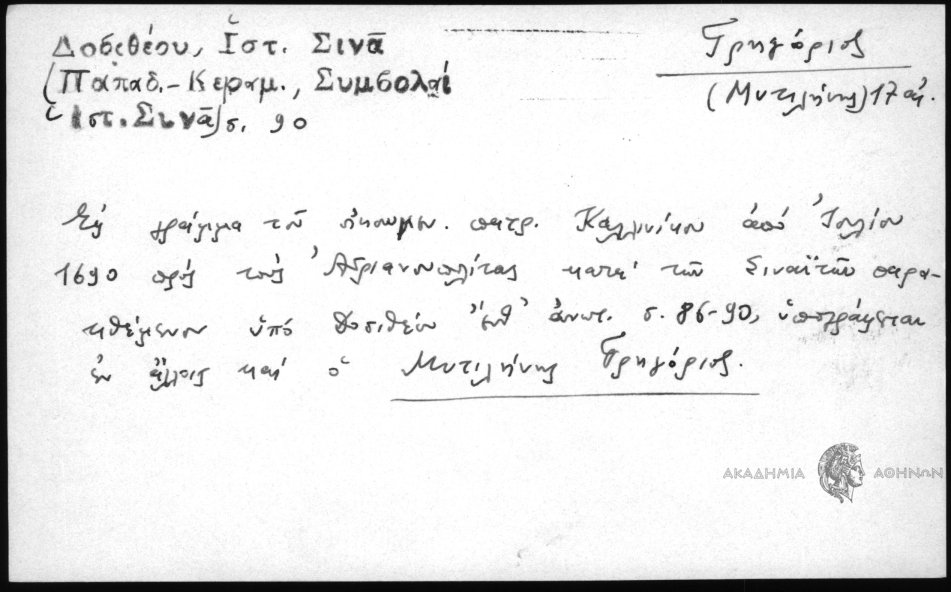 Δοσιθέου, Ἱστ. Σινᾶ
(Παπαδ.-Κεραμ., Συμβολαί
Ἱστ. Σινᾶ) σ. 90
Γρηγόριος
(Μυτιλήνης) 17 αἰ.
Εἰς γράμμα τοῦ οἰκουμεν. πατρ. Καλλινίκου ἀπό Ἰουλίου
1690 πρός τούς Ἀδριανουπολίτας κατά τῶν Σιναϊτῶν παρα-
τιθέμενον ὑπό Δοσιθέου ἔνθ' ἀνωτ. σ. 86-90, ὑπογράφεται
ἐν ἄλλοις καί ὁ Μυτιλήνης Γρηγόριος.
ΑΚΑΔΗΜΙΑ ΑΘΗΝΩΝ